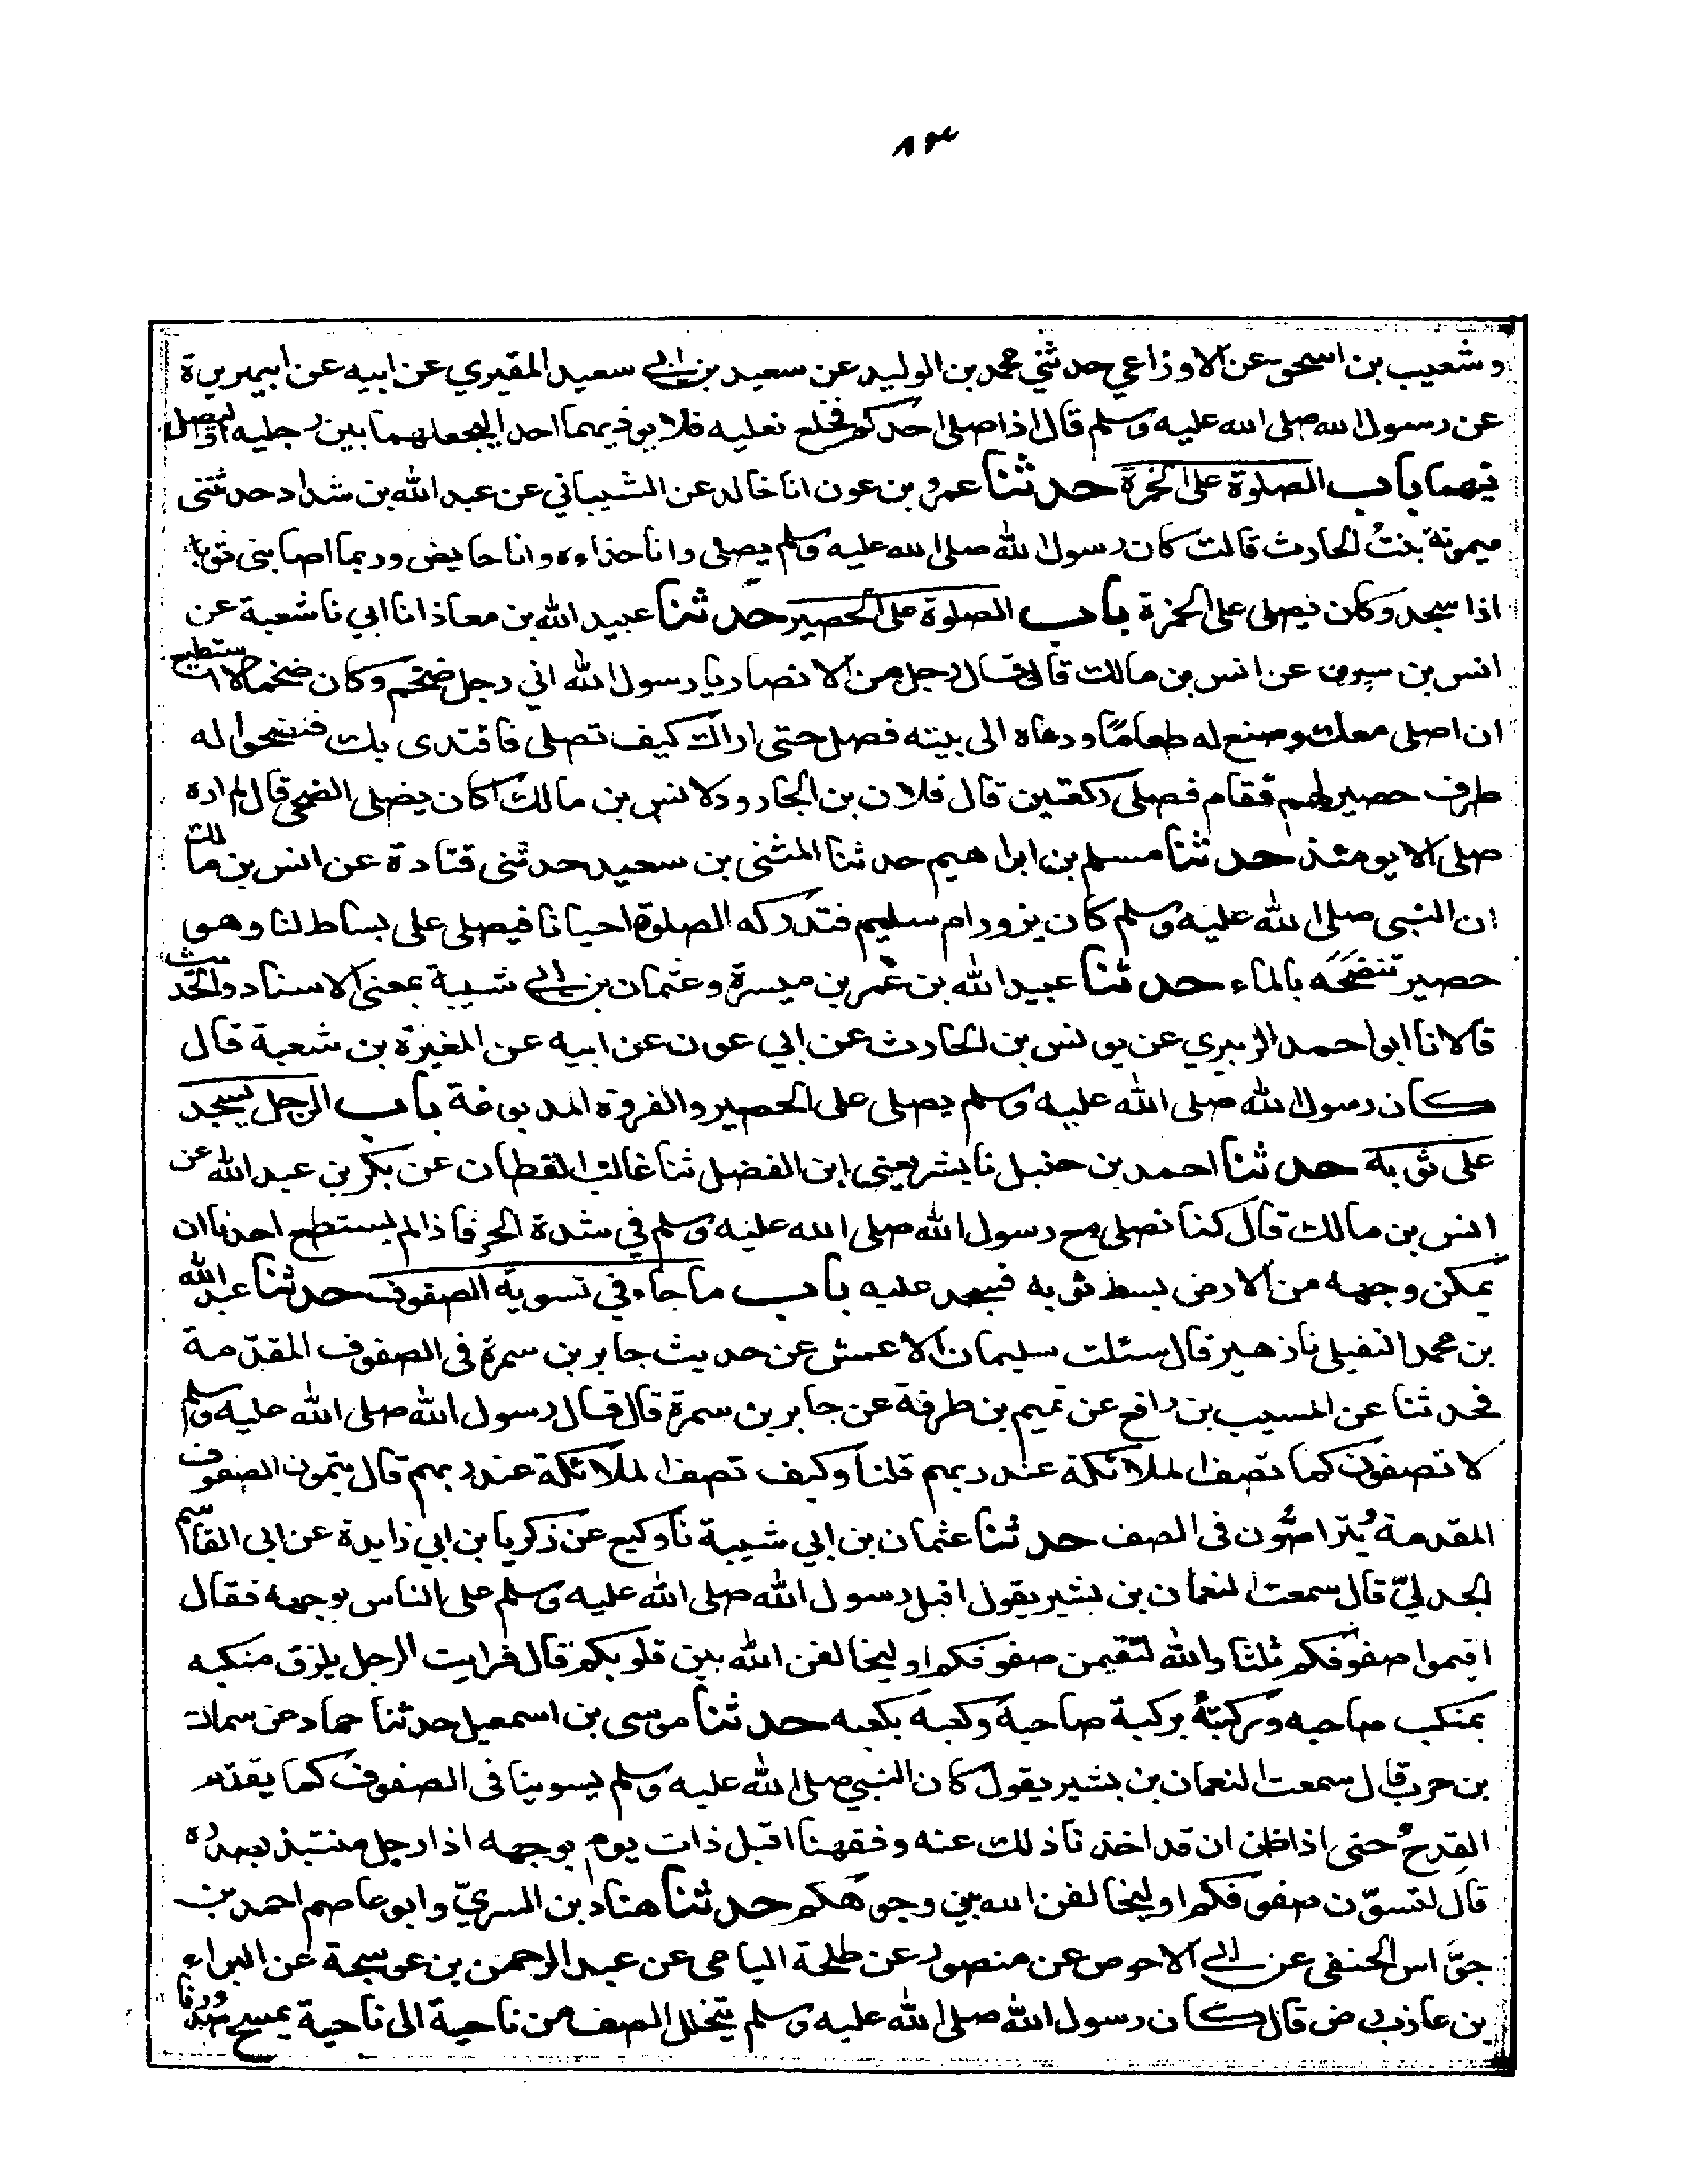 ٨٣
وشعيب بن اسحق عن الاوزاعي حدثني محمد بن الوليد عن سعيد بن ابي سعيد المقبري عن ابيه عن ابي هريرة
عن رسول الله صلى الله عليه وسلم قال اذا صلى احدكم فخلع نعليه فلا يوذ بهما احدا ليجعلهما بين رجليه او ليصل
فيهما باب الصلوة على الخمرة حدثنا عمرو بن عون انا خالد عن الشيباني عن عبد الله بن شداد حدثتنى
ميمونة بنت الحارث قالت كان رسول الله صلى الله عليه وسلم يصلى وانا حذاءه وانا حايض وربما اصابنى ثوبه
اذا سجد وكان يصلى على الخمرة باب الصلوة على الحصير حدثنا عبيد الله بن معاذ انا ابي نا شعبة عن
انس بن سيرين عن انس بن مالك قال قال رجل من الانصار يا رسول الله اني رجل ضخم وكان ضخما لا استطيع
ان اصلى معك وصنع له طعامًا ودعاه الى بيته فصل حتى اراك كيف تصلى فاقتدى بك فنضحوا له
طرف حصير لهم فقام فصلى ركعتين قال فلان بن الجارود لانس بن مالك أكان يصلى الضحى قال لم اره
صلى الا يومئذ حدثنا مسلم بن ابراهيم حدثنا المثنى بن سعيد حدثنى قتادة عن انس بن مالك
ان النبى صلى الله عليه وسلم كان يزور ام سليم فتدركه الصلوة احيانا فيصلى على بساط لنا وهو
حصير تنضحه بالماء حدثنا عبيد الله بن عمر بن ميسرة وعثمان بن ابي شيبة بمعنى الاسناد والحديث
قالا نا ابو احمد الزبيري عن يونس بن الحارث عن ابي عون عن ابيه عن المغيرة بن شعبة قال
كان رسول الله صلى الله عليه وسلم يصلى على الحصير والفروة المدبوغة باب الرجل يسجد
على ثوبه حدثنا احمد بن حنبل نا بشر يعنى ابن الفضل ثنا غالب القطان عن بكر بن عبد الله عن
انس بن مالك قال كنا نصلى مع رسول الله صلى الله عليه وسلم في شدة الحر فاذا لم يستطع احدنا ان
يمكن وجهه من الارض بسط ثوبه فسجد عليه باب ما جاء في تسوية الصفوف حدثنا عبد الله
بن محمد النفيلى نا زهير قال سئلت سليمان الاعمش عن حديث جابر بن سمرة فى الصفوف المقدّمة
فحدثنا عن المسيب بن رافع عن تميم بن طرفة عن جابر بن سمرة قال قال رسول الله صلى الله عليه وسلم
لا تصفون كما تصف الملائكة عند ربهم قلنا وكيف تصف الملائكة عند ربهم قال يتمون الصفوف
المقدمة يُتراصُّون فى الصف حدثنا عثمان بن ابي شيبة نا وكيع عن زكريا بن ابي زايدة عن ابى القاسم
الجدليّ قال سمعت النعمان بن بشير يقول اقبل رسول الله صلى الله عليه وسلم على الناس بوجهه فقال
اقيموا صفوفكم ثلثا والله لتقيمن صفوفكم او ليخالفن الله بين قلوبكم قال فرايت الرجل يلزق منكبه
بمنكب صاحبه وركبتهُ بركبة صاحبه وكعبه بكعبه حدثنا موسى بن اسمعيل حدثنا حماد عن سماك
بن حرب قال سمعت النعمان بن بشير يقول كان النبي صلى الله عليه وسلم يسوينا فى الصفوف كما يقوّم
القِدحُ حتى اذا ظن ان قد اخذنا ذلك عنه وفقهنا اقبل ذات يوم بوجهه اذا رجل منتبذ بصدره
قال لتسوّن صفوفكم او ليخالفن الله بين وجوهكم حدثنا هناد بن السريّ وابو عاصم احمد بن
جوَّاس الحنفى عن ابي الاحوص عن منصور عن طلحة اليامى عن عبد الرحمن بن عوسجة عن البراء
بن عازب رض قال كان رسول الله صلى الله عليه وسلم يتخلل الصف من ناحية الى ناحية يمسح صدورنا